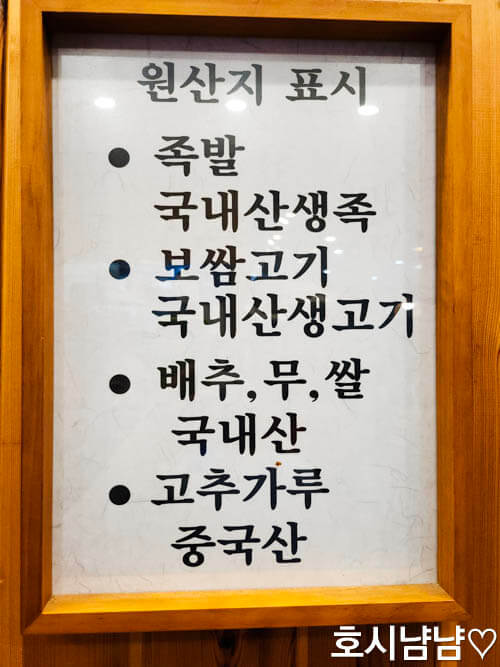 원산지 표시
● 족발
국내산생족
● 보쌈고기
국내산생고기
● 배추,무,쌀
국내산
● 고추가루
중국산
호시냠냠♡